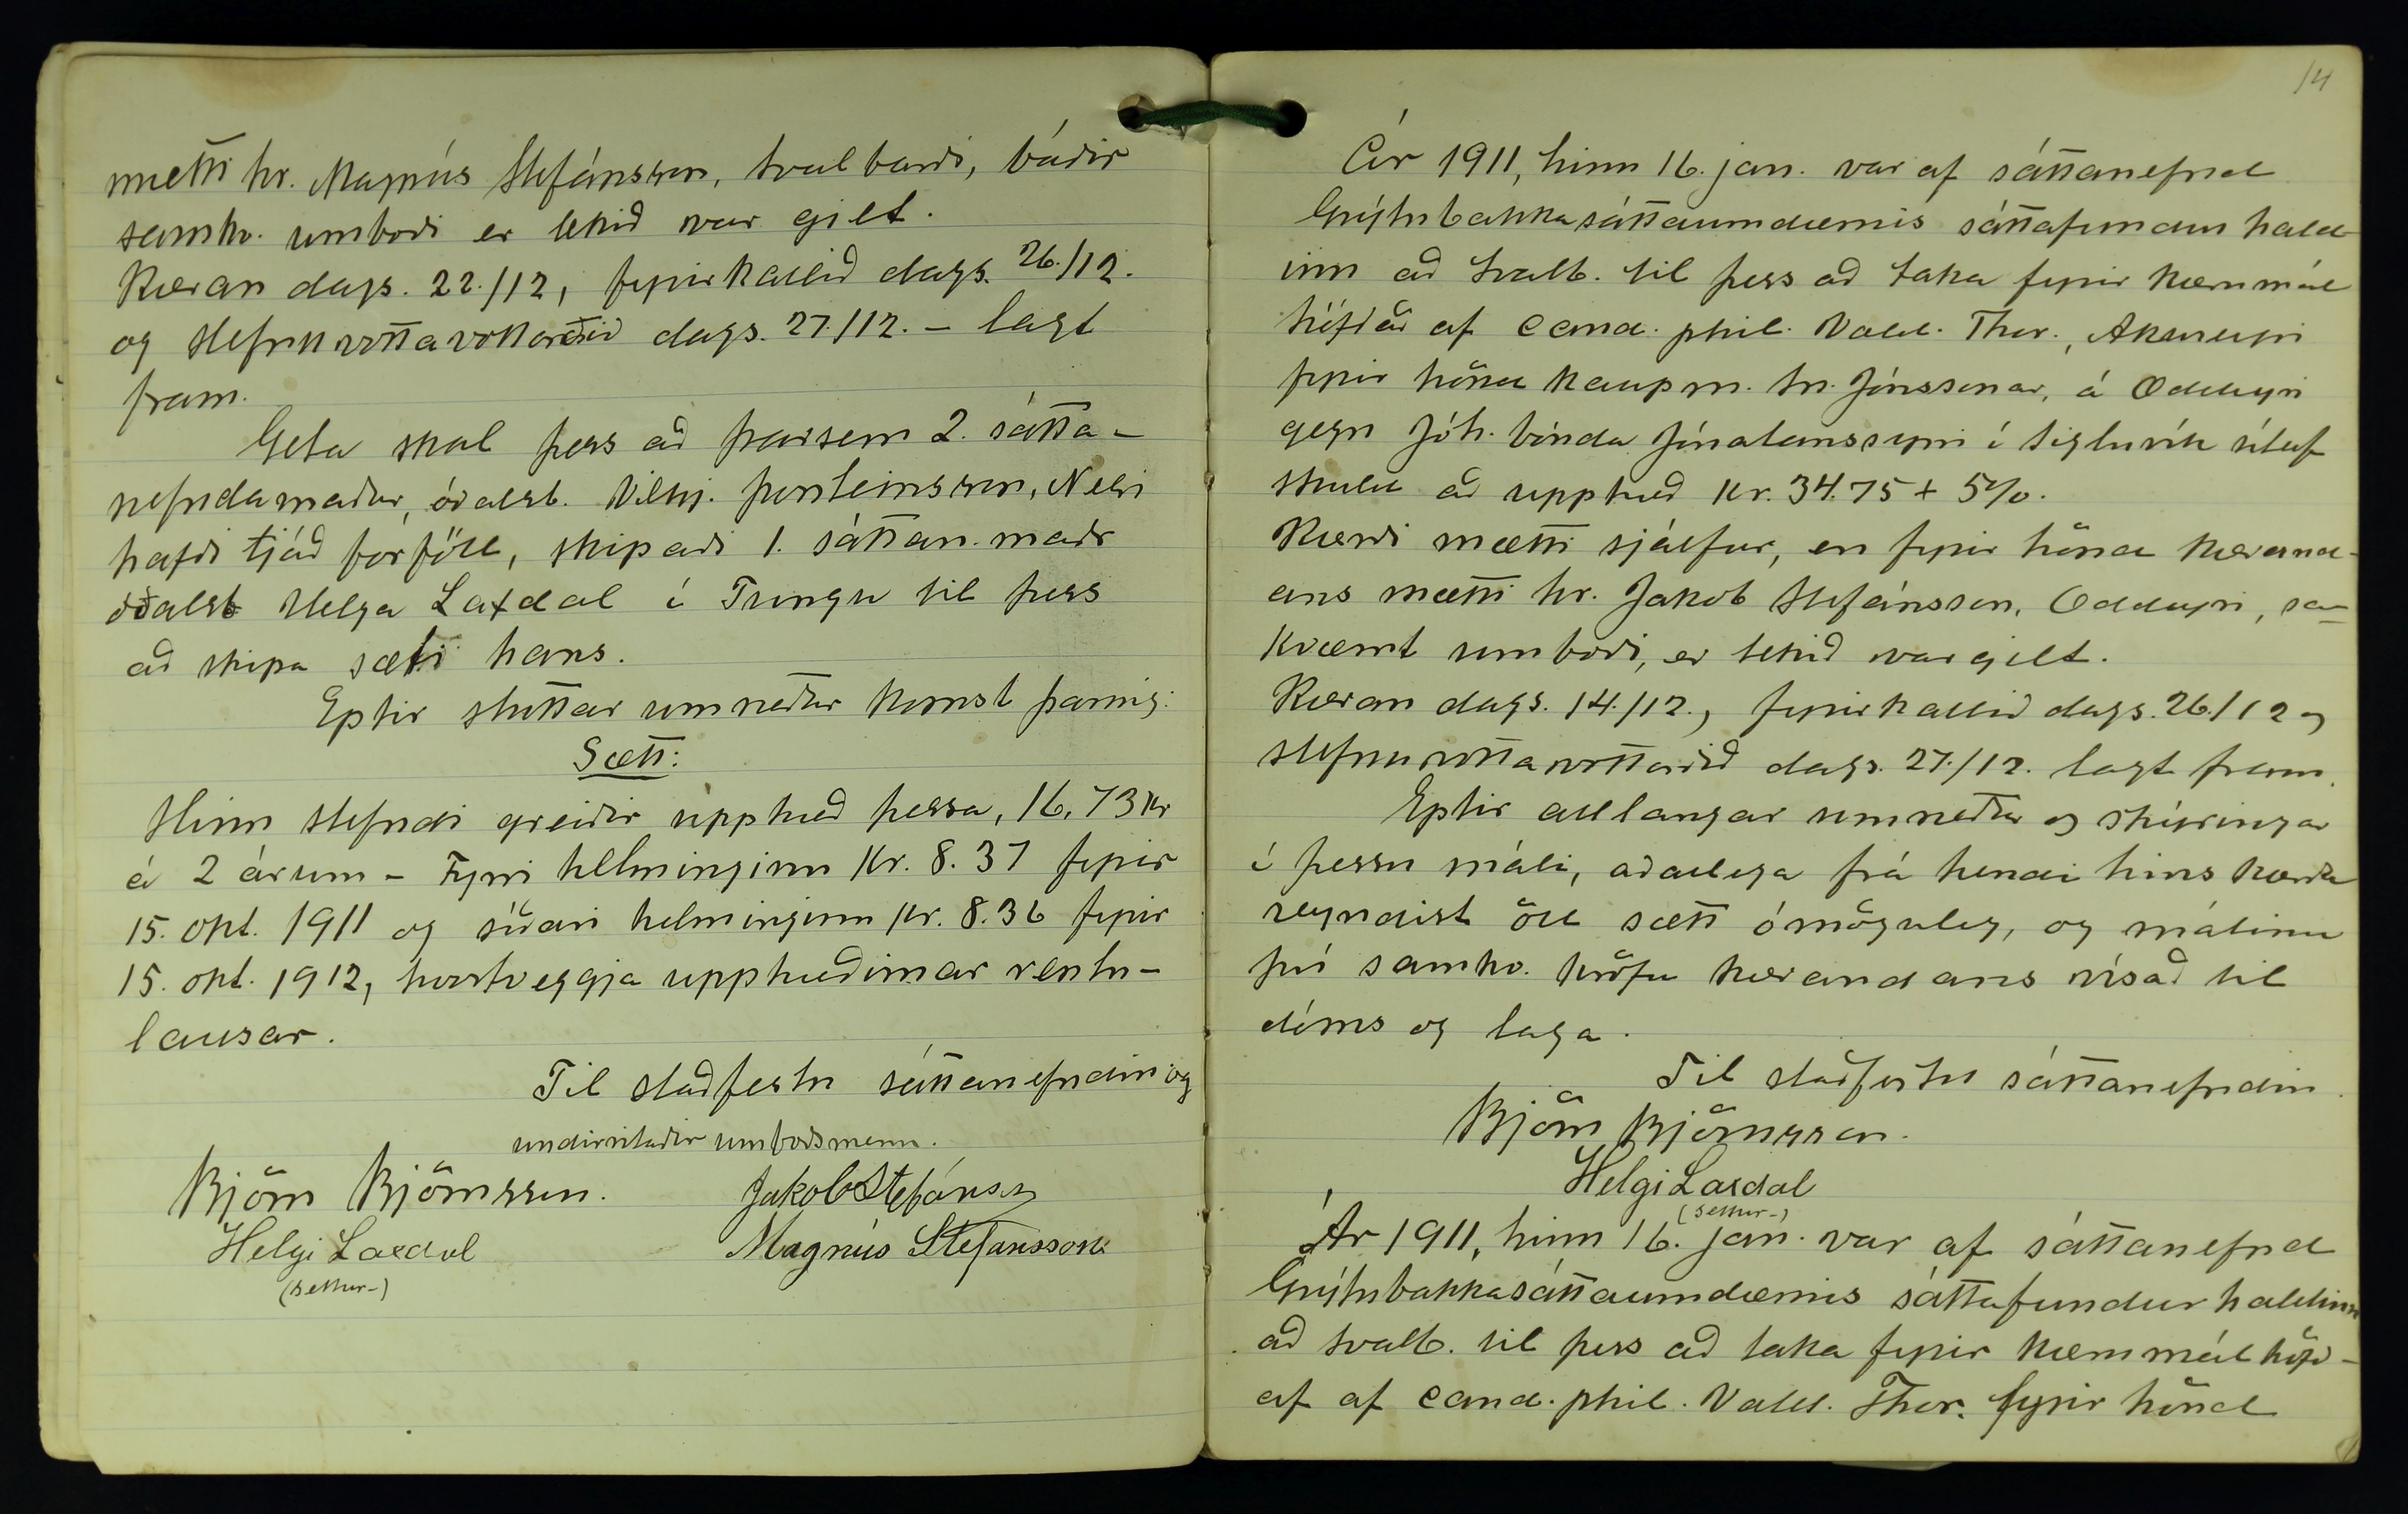 mætti hr. Magnús Stefánsson, Svalbarði, báðir
samkv. umboði er tekið var gilt.
Kæran dags. 22./12, fyrirkallið dags. 26./12.
og stefnuvottavottorðið dags. 27./12. – lagt
fram.
Geta skal þess að þarsem 2. sátta-
nefndamaður, óðalsb. Vilhj. Þorsteinsson, Nesi
hafði tjáð forföll, skipaði 1. sáttan. maðr
óðalsb Helga Laxdal í Tungu til þess
að skipa sæti hans.
Eptir stuttar umræður komst þannig:
Sætt:
Hinn stefndi greiðir upphæð þessa, 16,73 kr
á 2 árum – Fyrri helminginn kr. 8.37 fyrir
15. okt. 1911 og síðari helminginn kr. 8.36 fyrir
15. okt. 1912, hvortveggja upphæðirnar rentu-
lausar.
Til staðfestu sáttanefndin og
undirritaðir umboðsmenn.
Björn Björnsson. Jakob Stefánss
Helgi Laxdal Magnús Stefánsson
(settur-)
14
Ár 1911, hinn 16. jan. var af sáttanefnd
Grýtubakkasáttaumdæmis sáttafundur hald-
inn að Svalb. til þess að taka fyrir kærumál
höfðað af cand. phil. Vald. Thor., Akureyri
fyrir hönd kaupm. Sn. Jónssonar, á Oddeyri
gegn Jóh. bónda Jónatanssyni í Sigluvík útaf
skuld að upphæð kr. 34.75 + 5%.
Kærði mætti sjálfur, en fyrir hönd kærand-
ans mætti hr. Jakob Stefánsson, Oddeyri, sam-
kvæmt umboði, er tekið var gilt.
Kæran dags. 14./12., fyrirkallið dags. 26./12 og
stefnuvottavottorðið dags. 27./12. lagt fram.
Eptir alllangar umræður og skýringar
í þessu máli, aðallega frá hendi hins kærða
reyndist öll sætt ómöguleg, og málinu
því samkv. kröfu kærandans vísað til
dóms og laga.
Til staðfestu sáttanefndin.
Björn Björnsson.
Helgi Laxdal
(settur-)
Ár 1911, hinn 16. jan. var af sáttanefnd
Grýtubakkasáttaumdæmis sáttafundur haldinn
að Svalb. til þess að taka fyrir kærumál höfð-
að af cand. phil. Vald. Thor. fyrir hönd